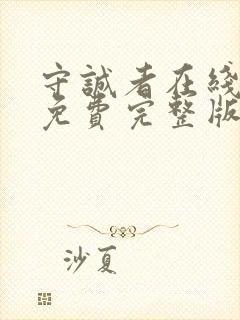 守誠者在綫
免費完整版
沙夏